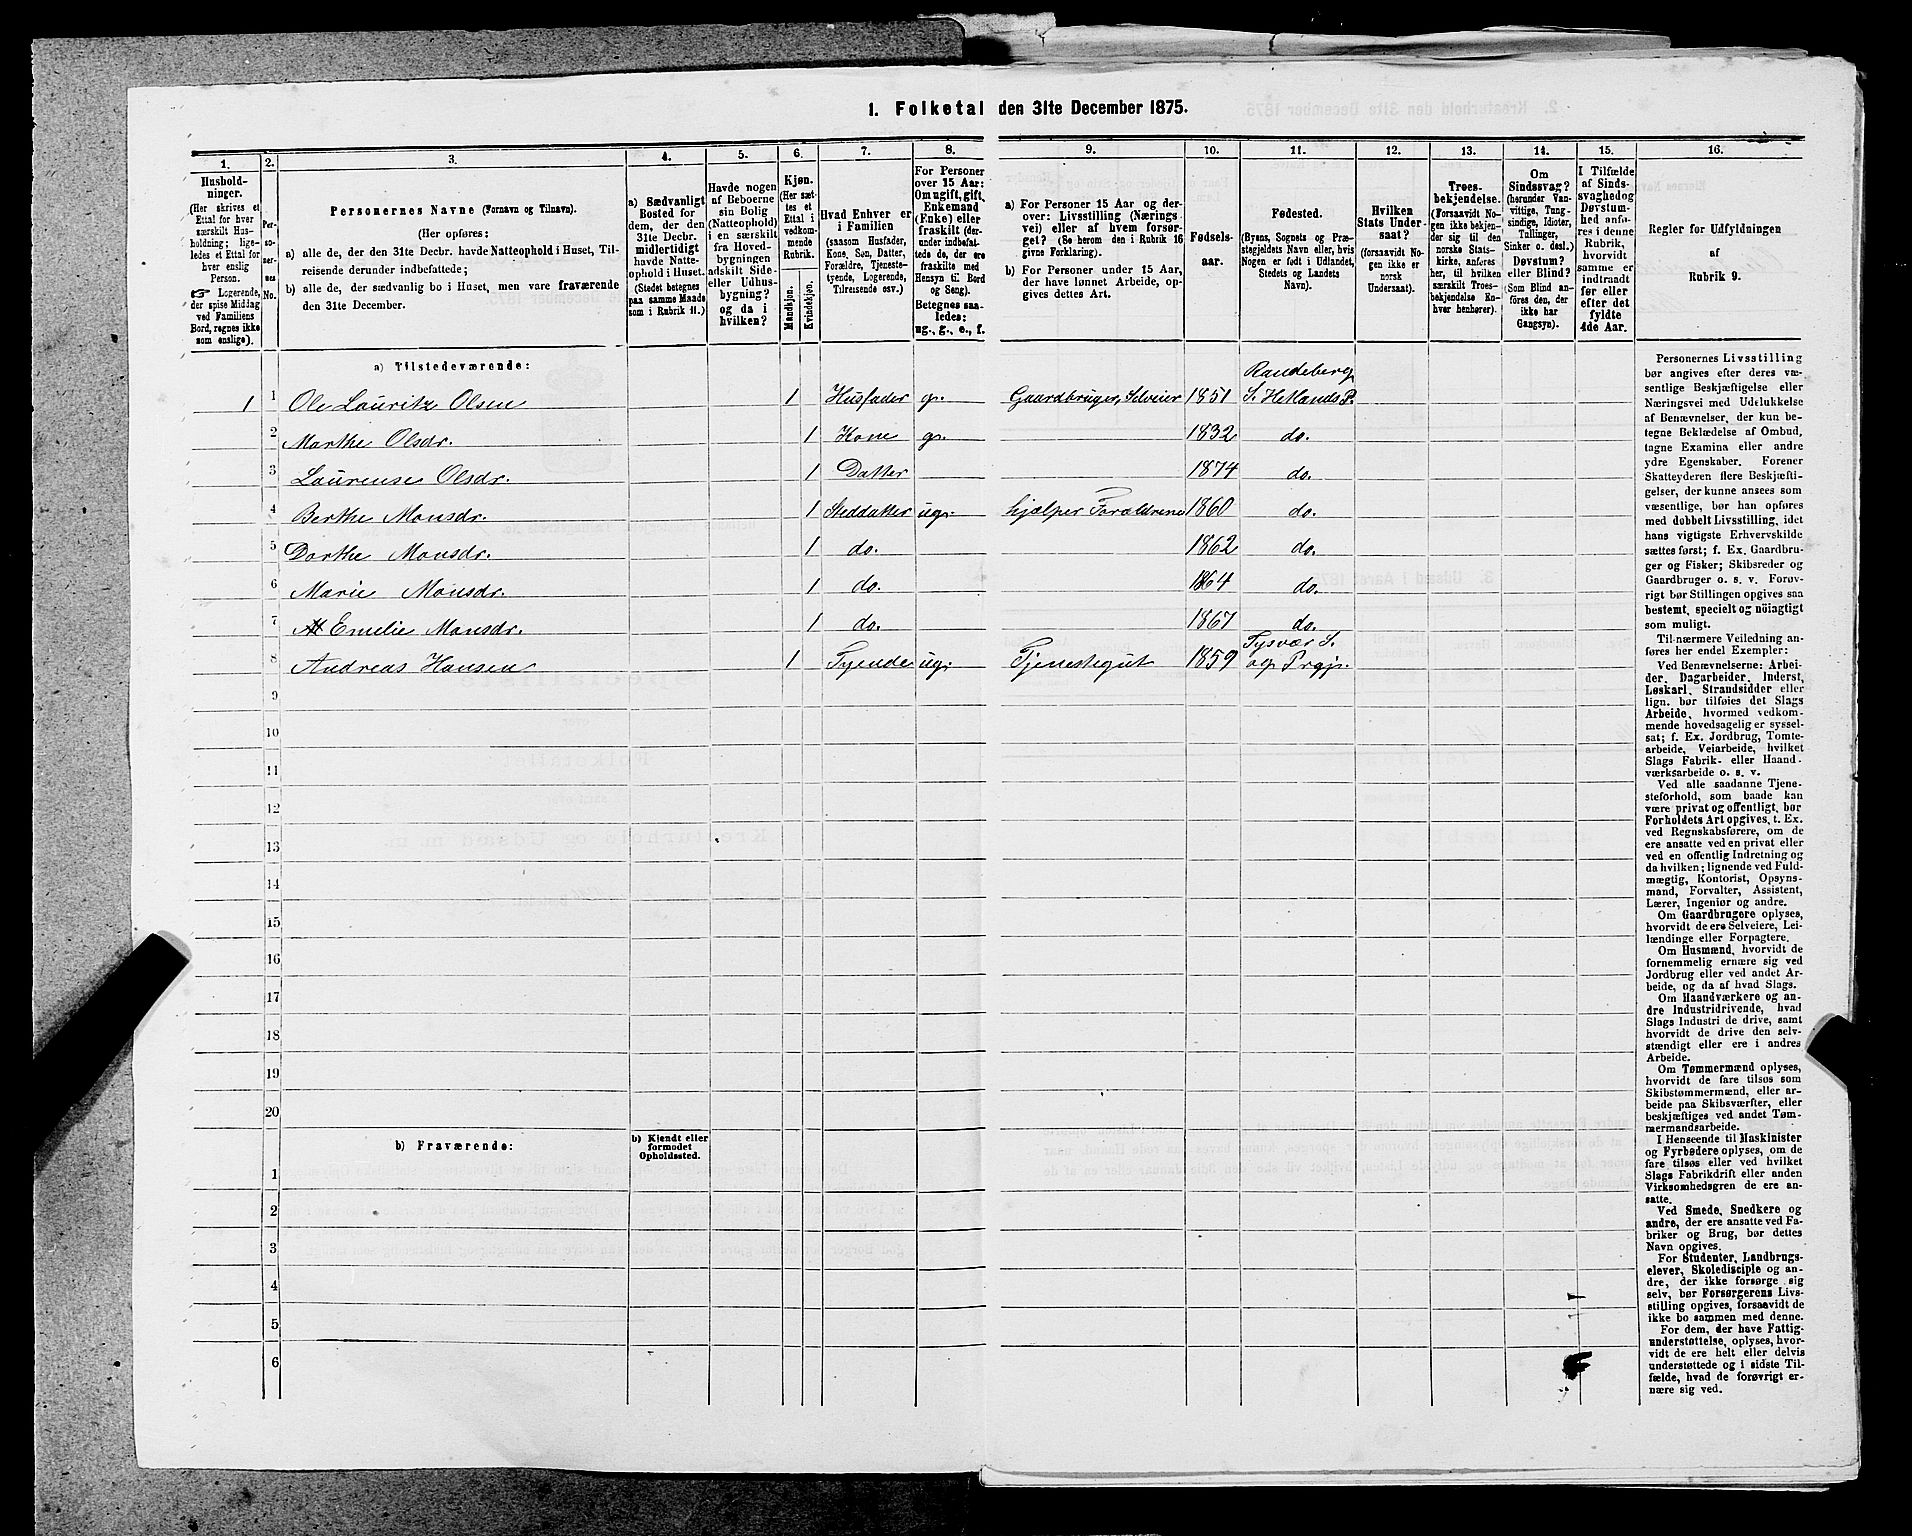 1. Folketal den 31te December 1875.
1. 2. 3. 4. 5. 6. 7. 8. 9. 10. 11. 12. 13. 14. 15. 16.
Hushold-
ninger.
(Her skrives et
Ettal for hver
særskilt Hus-
holdning; lige-
ledes et Ettal for
hver enslig
Person.
☞ Logerende,
der spise Middag
ved Familiens
Bord, regnes ikke
som enslige).
Per-
so-
ner-
nes
No.
Personernes Navne (Fornavn og Tilnavn).
(Her opføres:
a) alle de, der den 31te Decbr. havde Natteophold i Huset, Til-
reisende derunder indbefattede;
b) alle de, der sædvanlig bo i Huset, men vare fraværende
den 31te December.
a) Sædvanligt
Bosted for
dem, der den
31te Decbr.
midlertidigt
havde Natte-
ophold i Huset.
(Stedet betegnes
paa samme Maade
som i Rubrik 11.)
Havde nogen
af Beboerne
sin Bolig
(Natteophold)
i en særskilt
fra Hoved-
bygningen
adskilt Side-
eller Udhus-
bygning?
og da i
hvilken?
Kjøn.
(Her sæt-
tes et
Ettal i
vedkom-
mende
Rubrik.
Mandkjøn.
Kvindekjøn.
Hvad Enhver er
i Familien
(saasom Husfader,
Kone, Søn, Datter,
Forældre, Tjeneste-
tyende, Logerende,
Tilreisende osv.)
For Personer
over 15 Aar:
Om ugift, gift,
Enkemand
(Enke) eller
fraskilt (der-
under indbefat-
tede de, der ere
fraskilte med
Hensyn til Bord
og Seng).
Betegnes saa-
ledes:
ug., g., e., f.
a) For Personer 15 Aar og der-
over: Livsstilling (Nærings-
vei) eller af hvem forsør-
get? (Se herom den i Rubrik 16
givne Forklaring).
b) For Personer under 15 Aar,
der have lønnet Arbeide, op-
gives dettes Art.
Fødsels-
aar.
Fødested.
(Byens, Sognets og Præ-
stegjeldets Navn eller, hvis
Nogen er født i Udlandet,
Stedets og Landets
Navn).
Hvilken
Stats Under-
saat?
(forsaavidt No-
gen ikke er
norsk
Undersaat).
Troes-
bekjendelse.
(Forsaavidt No-
gen ikke bekjen-
der sig til den
norske Stats-
kirke, anføres
her, til hvilken
særskilt Troes-
bekjendelse En-
hver henhører).
Om
Sindssvag?
(herunder Van-
vittige, Tung-
sindige, Idioter,
Tullinger,
Sinker o. desl.)
Døvstum?
eller Blind?
(Som Blind an-
føres den, der
ikke har
Gangsyn).
I Tilfælde
af Sinds-
svaghed og
Døvstum-
hed anfø-
res i denne
Rubrik,
hvorvidt
samme er
indtraadt
før eller
efter det
fyldte
4de Aar.
Regler for Udfyldningen
af
Rubrik 9.
a) Tilstedeværende:
1 1 Ole Lauritz Olsen 1 Husfader g. Gaardbruger, Selveier 1851 Randeberg S. Hetlands P.
2 Marthe Olsdr. 1 Kone g. 1832 do.
3 Laurense Olsdr. 1 Datter 1874 do.
4 Berthe Monsdr. 1 Steddatter ug. hjælper Forældrene 1860 do.
5 Dorthe Monsdr. 1 do. 1862 do.
6 Marie Monsdr. 1 do. 1864 do.
7 Emelie Monsdr. 1 do. 1867 do.
8 Andreas Hansen 1 Tyende ug. Tjenestegut 1859 Tysvær S. og Prgj.
9
10
11
12
13
14
15
16
17
18
19
20
b) Fraværende:
b) Kjendt eller
formodet
Opholdssted.
1
2
3
4
5
6
Personernes Livsstilling
bør angives efter deres væ-
sentlige Beskjæftigelse eller
Næringsvei med Udelukkelse
af Benævnelser, der kun be-
tegne Beklædelse af Ombud,
tagne Examina eller andre
ydre Egenskaber. Forener
Skatteyderen flere Beskjæfti-
gelser, der kunne ansees som
væsentlige, bør han opføres
med dobbelt Livsstilling, idet
hans vigtigste Erhvervskilde
sættes først; f. Ex. Gaardbru-
ger og Fisker; Skibsreder og
Gaardbruger o. s. v. Forøv-
rigt bør Stillingen opgives saa
bestemt, specielt og nøiagtigt
som muligt.
Til nærmere Veiledning an-
føres her endel Exempler:
Ved Benævnelserne: Arbei-
der, Dagarbeider, Inderst,
Løskarl, Strandsidder eller
lign. bør tilføies det Slags
Arbeide, hvormed vedkom-
mende hovedsagelig er syssel-
sat; f. Ex. Jordbrug, Tomte-
arbeide, Veiarbeide, hvilket
Slags Fabrik- eller Haand-
værksarbeide o. s. v.
Ved alle saadanne Tjene-
steforhold, som baade kan
være privat og offentligt, bør
Forholdets Art opgives, t. Ex.
ved Regnskabsførere, om de
ere ansatte ved en privat eller
ved en offentlig Indretning og
da hvilken; lignende ved Fuld-
mægtig, Kontorist, Opsyns-
mand, Forvalter, Assistent,
Lærer, Ingeniør og andre.
Om Gaardbrugere oplyses,
hvorvidt de ere Selveiere, Lei-
lændinge eller Forpagtere.
Om Husmænd, hvorvidt de
fornemmelig ernære sig ved
Jordbrug eller ved andet Ar-
beide, og da af hvad Slags.
Om Haandværkere og an-
dre Industridrivende, hvad
Slags Industri de drive, samt
hvorvidt de drive den selv-
stændigt eller ere i andres
Arbeide.
Om Tømmermænd oplyses,
hvorvidt de fare tilsøs som
Skibstømmermænd, eller ar-
beide paa Skibsværfter, eller
beskjæftiges ved andet Tøm-
mermandsarbeide.
I Henseende til Maskinister
og Fyrbødere oplyses, om de
fare tilsøs eller ved hvilket
Slags Fabrikdrift eller anden
Virksomhedsgren de ere an-
satte.
Ved Smede, Snedkere og
andre, der ere ansatte ved Fa-
briker og Brug, bør dettes
Navn opgives.
For Studenter, Landbrugs-
elever, Skoledisciple og an-
dre, der ikke forsørge sig
selv, bør Forsørgerens Livs-
stilling opgives, forsaavidt de
ikke bo sammen med denne.
For dem, der have Fattig-
understøttelse, oplyses, hvor-
vidt de ere helt eller delvis
understøttede og i sidste Til-
fælde, hvad de forøvrigt er-
nære sig ved.